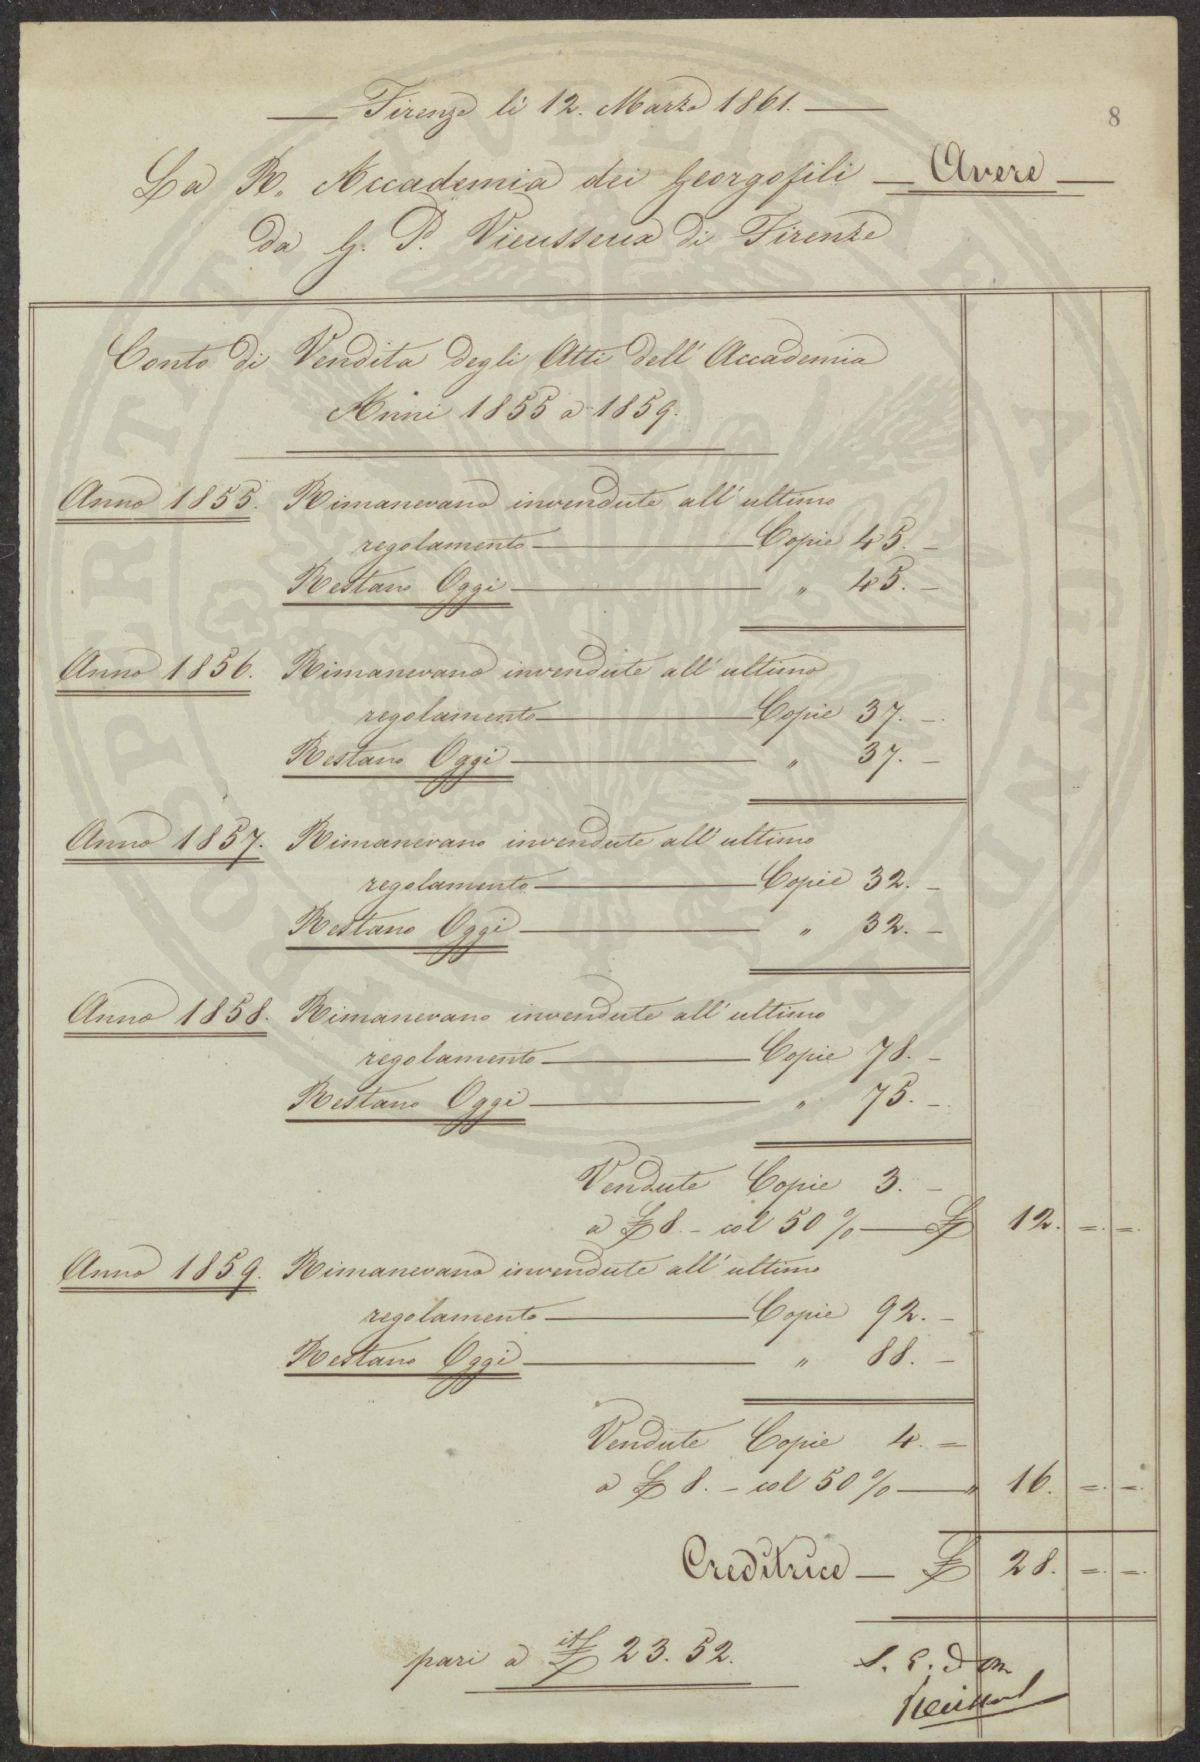 8
Firenze li 12. Marzo 1861.
La R. Accademia dei Georgofili — Avere —
da G. P. Vieusseux di Firenze
Conto di Vendita degli Atti dell' Accademia
Anni 1855 a 1859.
Anno 1855. Rimanevano invendute all' ultimo
regolamento — Copie 45. —
Restano Oggi — " 45. —
Anno 1856. Rimanevano invendute all' ultimo
regolamento — Copie 37. —
Restano Oggi — " 37. —
Anno 1857. Rimanevano invendute all' ultimo
regolamento — Copie 32. —
Restano Oggi — " 32. —
Anno 1858. Rimanevano invendute all' ultimo
regolamento — Copie 78. —
Restano Oggi — " 75. —
Vendute Copie 3. —
a £ 8. — col 50 % — £ 12. = . = .
Anno 1859. Rimanevano invendute all' ultimo
regolamento — Copie 92. —
Restano Oggi — " 88. —
Vendute Copie 4. =
a £ 8. — col 50 % — " 16. = . = .
Creditrice — £ 28. = . = .
pari a it£ 23. 52.
S. E. d Om
Vieusseux
PROSPERITATI PUBLICAE AUGENDAE